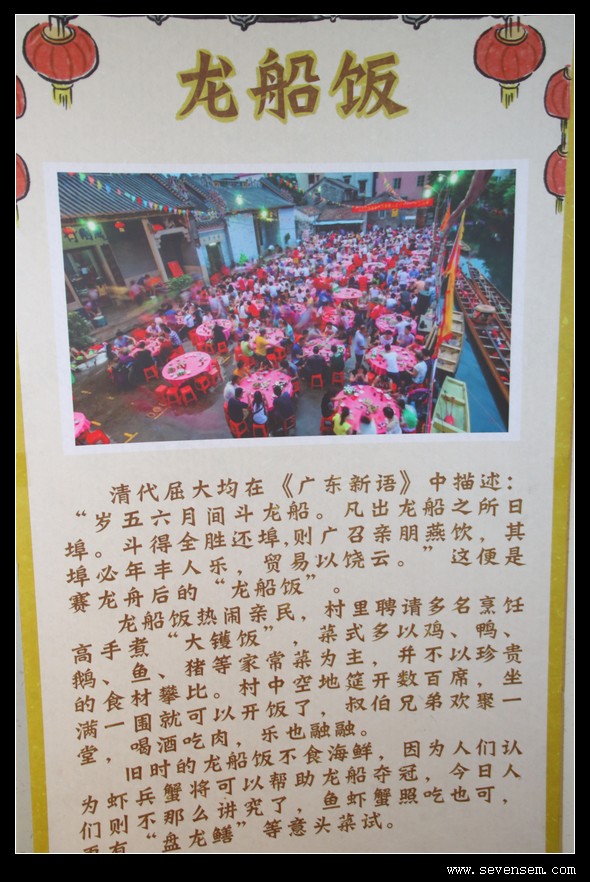 龙船饭
清代屈大均在《广东新语》中描述：
“岁五六月间斗龙船。凡出龙船之所日
埠。斗得全胜还埠,则广召亲朋燕饮，其
埠必年丰人乐，贸易以饶云。”这便是
赛龙舟后的“龙船饭”。
龙船饭热闹亲民，村里聘请多名烹饪
高手煮“大镬饭”，菜式多以鸡、鸭、
鹅、鱼、猪等家常菜为主，并不以珍贵
的食材攀比。村中空地筵开数百席，坐
满一围就可以开饭了，叔伯兄弟欢聚一
堂，喝酒吃肉，乐也融融。
旧时的龙船饭不食海鲜，因为人们认
为虾兵蟹将可以帮助龙船夺冠，今日人
们则不那么讲究了，鱼虾蟹照吃也可，
更有“盘龙鳝”等意头菜试。
www.sevensem.com